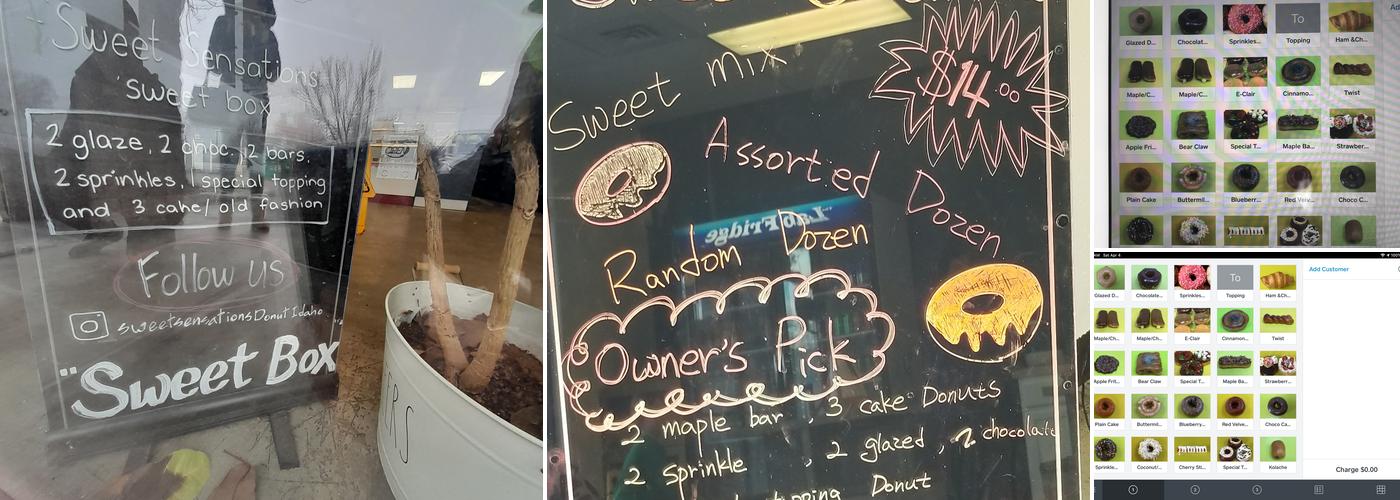 Sweet Sensations
"sweet box
2 glaze, 2 choc. 2 bars,
2 sprinkles, 1 special topping
and 3 cake/ old fashion
Follow us
sweetsensationsDonutIdaho
"Sweet Box
Sweet mix
$14.00
Assorted Dozen
Random Dozen
Owner's Pick
2 maple bar, 3 cake Donuts
2 sprinkle, 2 glazed, 2 chocolate
topping Donut
Glazed D...
Chocolat...
Sprinkles...
To
Topping
Ham &Ch...
Maple/C...
Maple/C...
E-Clair
Cinnamo...
Twist
Apple Fri...
Bear Claw
Special T...
Maple Ba...
Strawber...
Plain Cake
Buttermil...
Blueberr...
Red Velv...
Choco C...
Ad
Sat Apr 4
100%
Glazed D...
Chocolate...
Sprinkles...
To
Topping
Ham &Ch...
Add Customer
Maple/Ch...
Maple/Ch...
E-Clair
Cinnamon...
Twist
Apple Frit...
Bear Claw
Special T...
Maple Ba...
Strawberr...
Plain Cake
Buttermil...
Blueberry...
Red Velve...
Choco Ca...
Sprinkle...
Coconut/...
Cherry Sti...
Special T...
Kolache
Charge $0.00
1
2
3